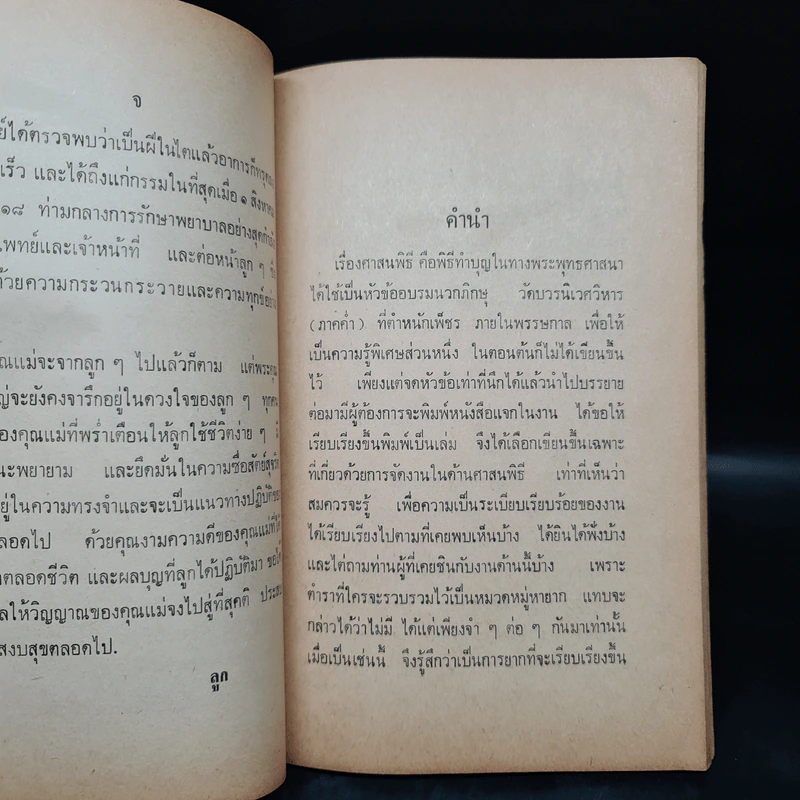 จ
ย์ได้ตรวจพบว่าเป็นฝีในไตแล้วอาการก็ทรุดลง
เร็ว และได้ถึงแก่กรรมในที่สุดเมื่อ ๑ สิงหาคม
๑๘ ท่ามกลางการรักษาพยาบาลอย่างสุดกำลัง
แพทย์และเจ้าหน้าที่ และต่อหน้าลูก ๆ ซึ่ง
ด้วยความกระวนกระวายและความทุกข์อย่าง
คุณแม่จะจากลูก ๆ ไปแล้วก็ตาม แต่พระคุณ
จะยังคงจารึกอยู่ในดวงใจของลูก ๆ ทุกคน
ของคุณแม่ที่พร่ำเตือนให้ลูกใช้ชีวิตง่าย ๆ มี
พยายาม และยึดมั่นในความซื่อสัตย์สุจริต
อยู่ในความทรงจำและจะเป็นแนวทางปฏิบัติของ
ตลอดไป ด้วยคุณงามความดีของคุณแม่ที่ได้
ตลอดชีวิต และผลบุญที่ลูกได้ปฏิบัติมา ขอให้
ให้วิญญาณของคุณแม่จงไปสู่ที่สุคติ ประสบ
สงบสุขตลอดไป.
ลูก
คำนำ
เรื่องศาสนพิธี คือพิธีทำบุญในทางพระพุทธศาสนา
ได้ใช้เป็นหัวข้ออบรมนวกภิกษุ วัดบวรนิเวศวิหาร
(ภาคค่ำ) ที่ตำหนักเพ็ชร ภายในพรรษกาล เพื่อให้
เป็นความรู้พิเศษส่วนหนึ่ง ในตอนต้นก็ไม่ได้เขียนขึ้น
ไว้ เพียงแต่จดหัวข้อเท่าที่นึกได้แล้วนำไปบรรยาย
ต่อมามีผู้ต้องการจะพิมพ์หนังสือแจกในงาน ได้ขอให้
เรียบเรียงขึ้นพิมพ์เป็นเล่ม จึงได้เลือกเขียนขึ้นเฉพาะ
ที่เกี่ยวด้วยการจัดงานในด้านศาสนพิธี เท่าที่เห็นว่า
สมควรจะรู้ เพื่อความเป็นระเบียบเรียบร้อยของงาน
ได้เรียบเรียงไปตามที่เคยพบเห็นบ้าง ได้ยินได้ฟังบ้าง
และไต่ถามท่านผู้ที่เคยชินกับงานด้านนี้บ้าง เพราะ
ตำราที่ใครจะรวบรวมไว้เป็นหมวดหมู่หายาก แทบจะ
กล่าวได้ว่าไม่มี ได้แต่เพียงจำ ๆ ต่อ ๆ กันมาเท่านั้น
เมื่อเป็นเช่นนี้ จึงรู้สึกว่าเป็นการยากที่จะเรียบเรียงขึ้น